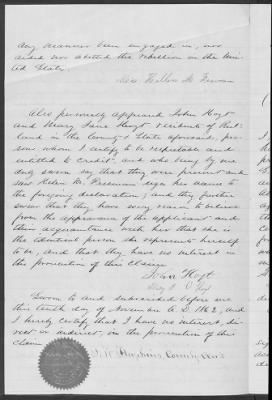 any manner been engaged in, nor
aided nor abetted the rebellion in the Uni-
ted States.
Helen M. Freeman
Also personally appeared John Hoyt
and Mary Jane Hoyt residents of Rut-
land in the County & State aforesaid, per-
sons whom I certify to be respectable and
entitled to credit, and who being by me
duly sworn say that they were present and
saw Helen M. Freeman sign her name to
the foregoing declaration; and they further
swear that they have every reason to believe
from the appearance of the applicant and
their acquaintance with her that she is
the identical person she represents herself
to be, and that they have no interest in
the prosecution of this claim.
John Hoyt
Mary J. Hoyt
Sworn to and subscribed before me
this tenth day of November A.D. 1862, and
I hereby certify that I have no interest, di-
rect or indirect, in the prosecution of this
claim.
Hopkins County Clerk